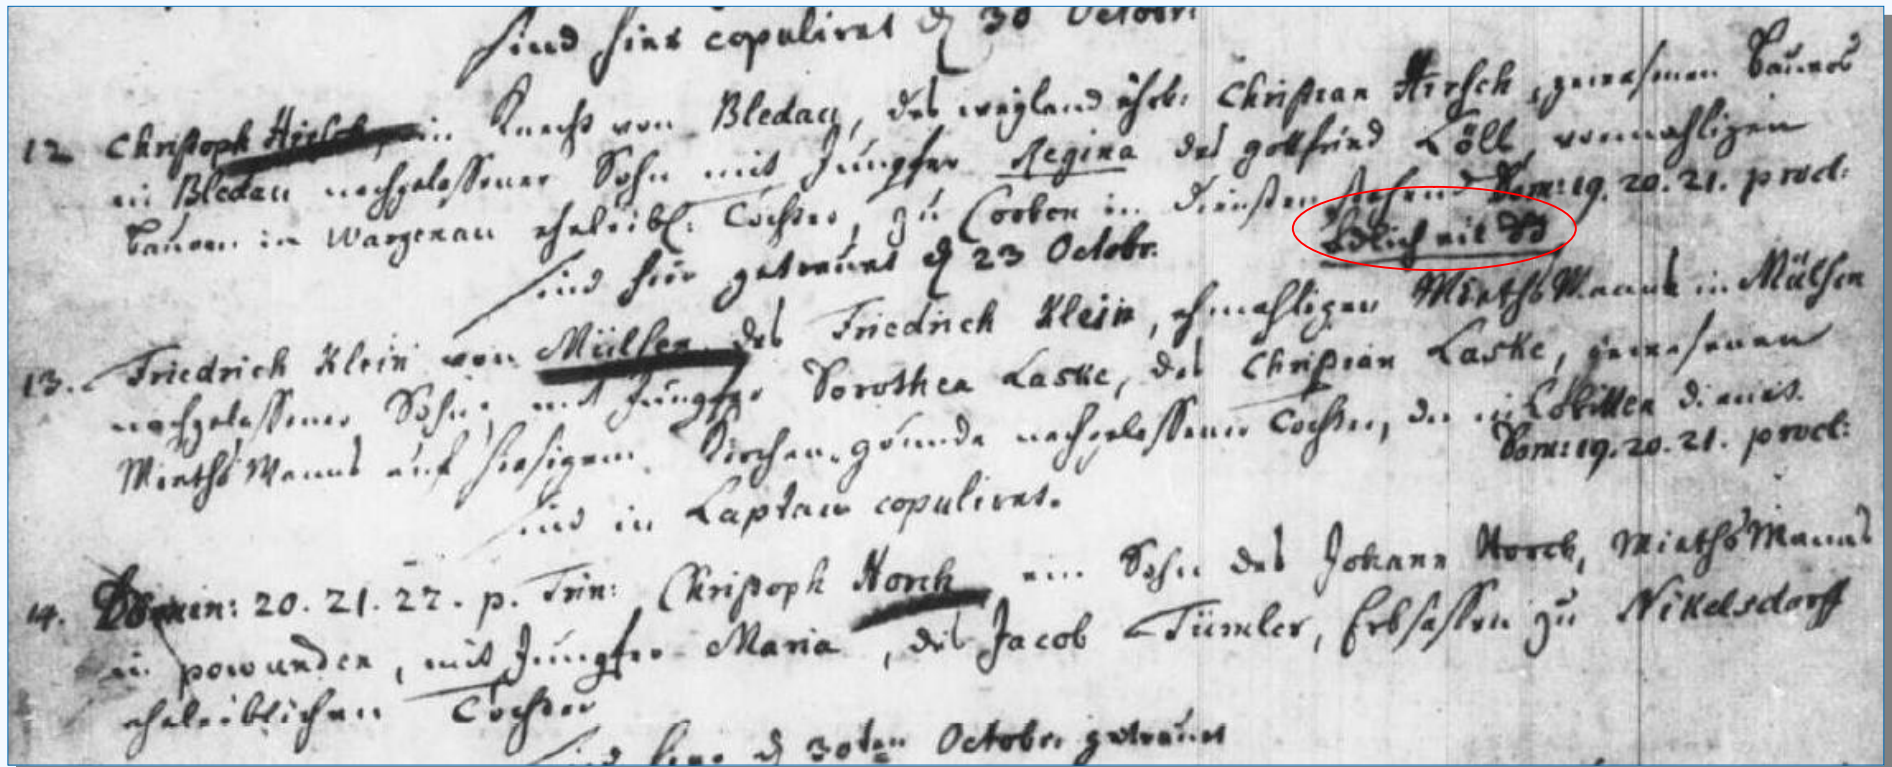 sind hier copuliret d 30 Octobr:
12 Christoph Hirsch, ein Knecht von Bledau, des weyland ehrb: Christian Hirsch, gewesenen Bauers
in Bledau nachgelassener Sohn mit Jungfer Regina des gottfried Löll vormahligen
Bauren in Wargenau eheleibl: Tochter, zu Corben in Diensten stehend Dom: 19. 20. 21. procl:
sind hier getrauet d 23 Octobr.
13. Friedrich Klein von Mülsen des Friedrich Klein, ehmahligen MiethsManns in Mülsen
nachgelassener Sohn, mit Jungfer Dorothea Laske, des Christian Laske, gewesenen
MiethsManns auf hiesigem Kirchen-grunde nachgelassenen Tochter, die in Lobitten dienet.
Dom: 19. 20. 21. procl:
sind in Laptau copuliret.
14. Domin: 20. 21. 22. p. Trin: Christoph Horch ein Sohn des Johann Horch, MiethsManns
in powunden, mit Jungfer Maria, des Jacob Tümler, Erbsassen zu Nikelsdorff
eheleiblichen Tochter
sind hier d 30ten Octobr: getrauet